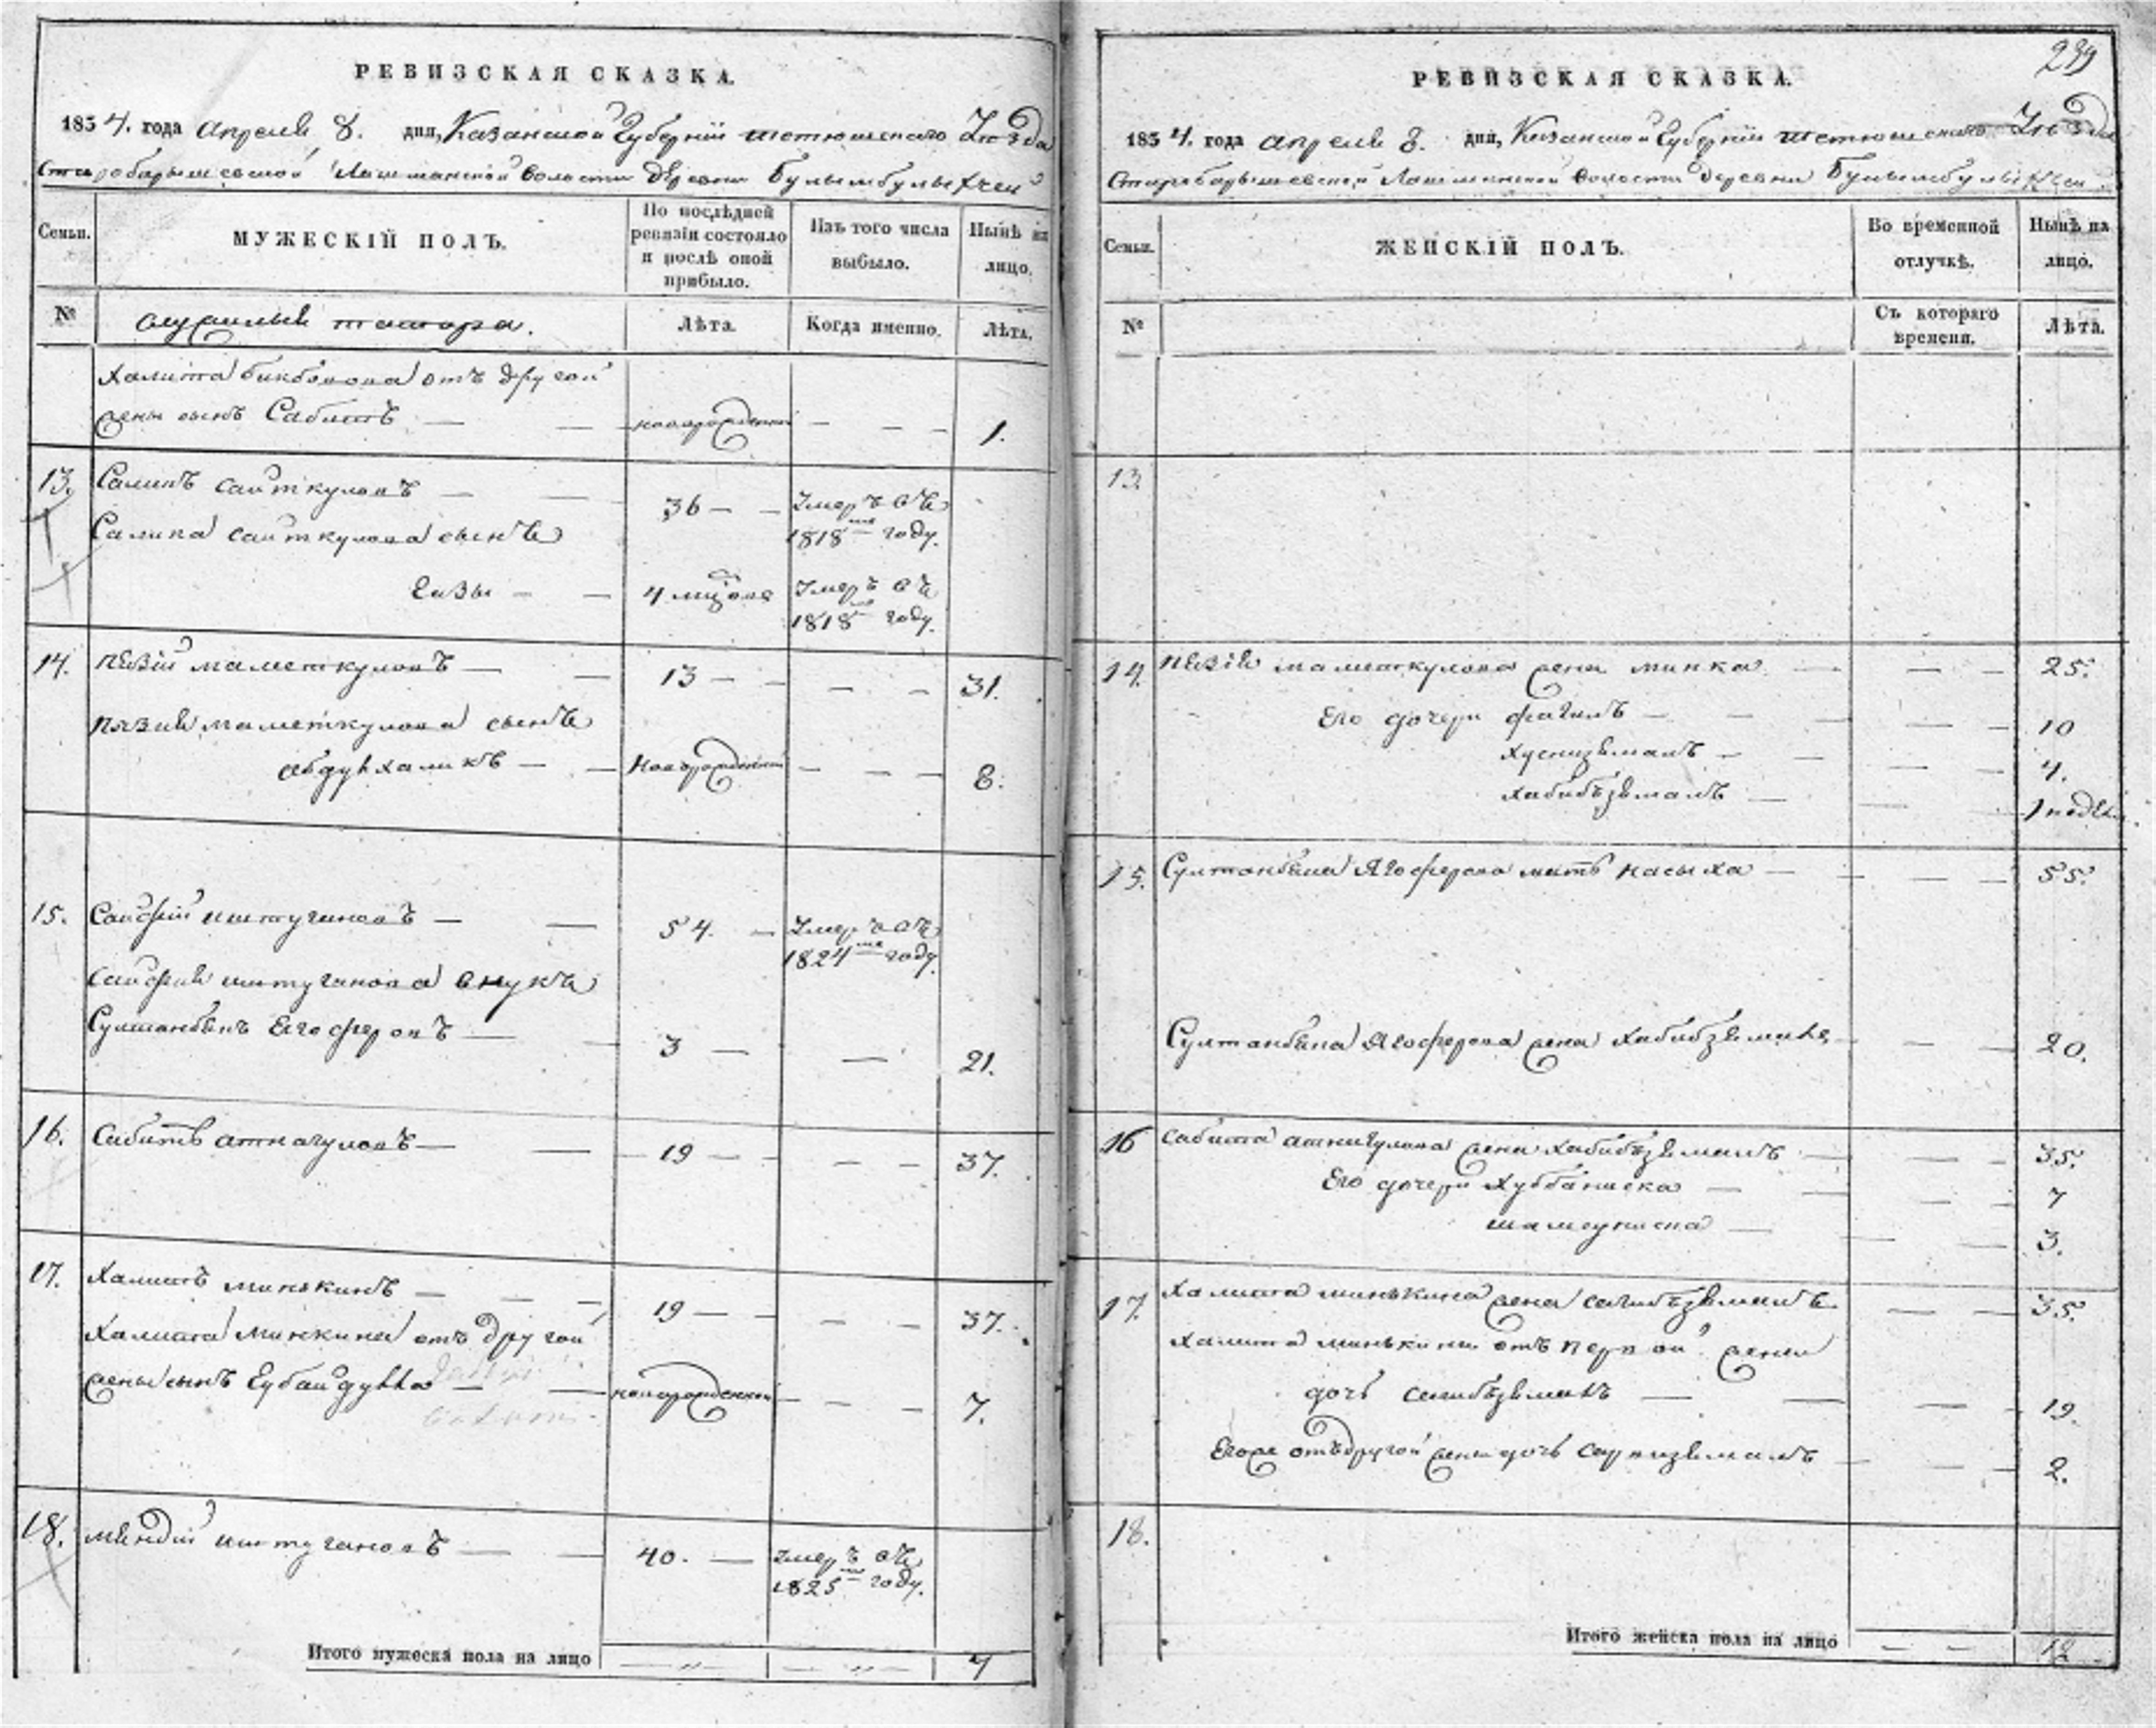 РЕВИЗСКАЯ СКАЗКА.
1834. года апреля 8. дня, Казанской Губернии Тетюшскаго Уѣзда
Старобарышевской Лашманской волости деревни
Семьи.
МУЖЕСКІЙ ПОЛЪ.
По послѣдней ревизіи состояло и послѣ оной прибыло.
Изъ того числа выбыло.
Нынѣ на лицо.
№
служилыя татара.
Лѣта.
Когда именно.
Лѣта.
Халита от другой
жены сынъ Сабитъ — новорожденный — 1.
13. Салихъ Саиткуловъ — 36 — Умеръ въ 1818м году.
Салиха Саиткулова сынъ
4 Умеръ въ 1818м году.
14. Нязій Маметкуловъ — 13 — 31.
Нязия Маметкулова сынъ
Абдулхаликъ — Новорожденный — 8.
15. Сайфій Иштугановъ — 54. — Умеръ въ 1824м году.
Сайфия Иштуганова внукъ
Султанбекъ Ягоферовъ — 3 — 21.
16. Сабитъ Атнагуловъ — 19 — 37.
17. Халитъ Минькинъ — 19 — 37.
Халита Минкина отъ другой
жены сынъ Губайдулла — новорожденной — 7.
18. Иштугановъ — 40. — Умеръ въ 1825м году.
Итого мужеска пола на лицо — „ — — „ — 7
239
РЕВИЗСКАЯ СКАЗКА.
1834. года апреля 8. дня, Казанской Губернии Тетюшскаго Уѣзда
Старобарышевской Лашманской волости деревни
Семьи.
ЖЕНСКІЙ ПОЛЪ.
Во временной отлучкѣ.
Нынѣ на лицо.
№
Съ котораго времени.
Лѣта.
13.
14. Нязія Маметкулова жена Минка — 25.
Его дочери — 10
Хуснизямалъ — 4.
Хабибъзямалъ — 1 недели
15. Султанбека Ягоферова мать Насыха — 55.
Султанбека Ягоферова жена — 20.
16 Сабита Атнагулова жена Хабибъзямалъ — 35.
Его дочери — 7
Шамсуниса — 3.
17. Халита Минькина жена Сагибъзямалъ — 35.
Халита Минькина отъ первой жены
дочь — 19.
Егоже отъ другой жены дочь — 2.
18.
Итого женска пола на лицо — — 12